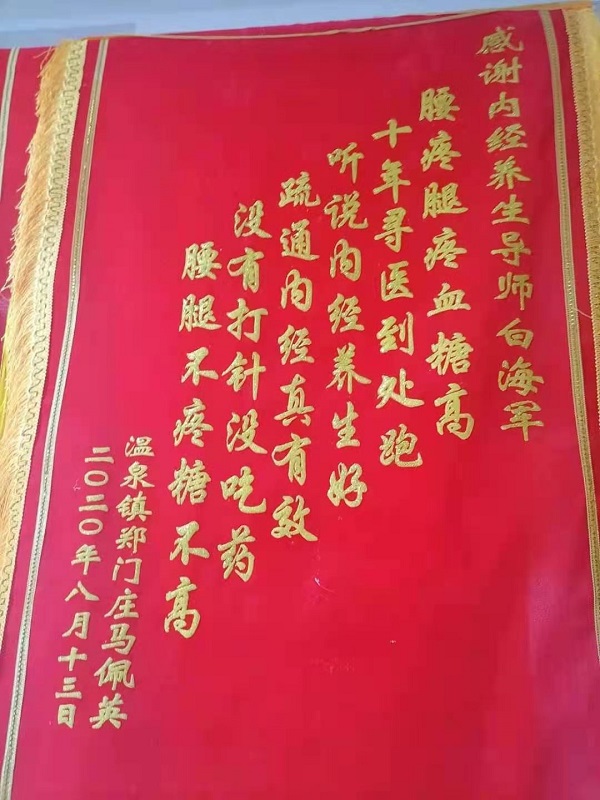 感谢内经养生导师白海军
腰疼腿疼血糖高
十年寻医到处跑
听说内经养生好
疏通内经真有效
没有打针没吃药
腰腿不疼糖不高
温泉镇郑门庄马佩英
二〇二〇年八月十三日